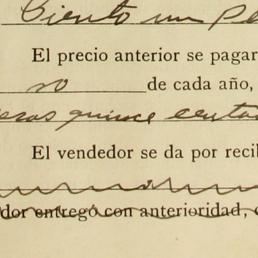 Ciento un pe
El precio anterior se pagar
no de cada año,
esos quince centa
El vendedor se da por recib
dor entregó con anterioridad,